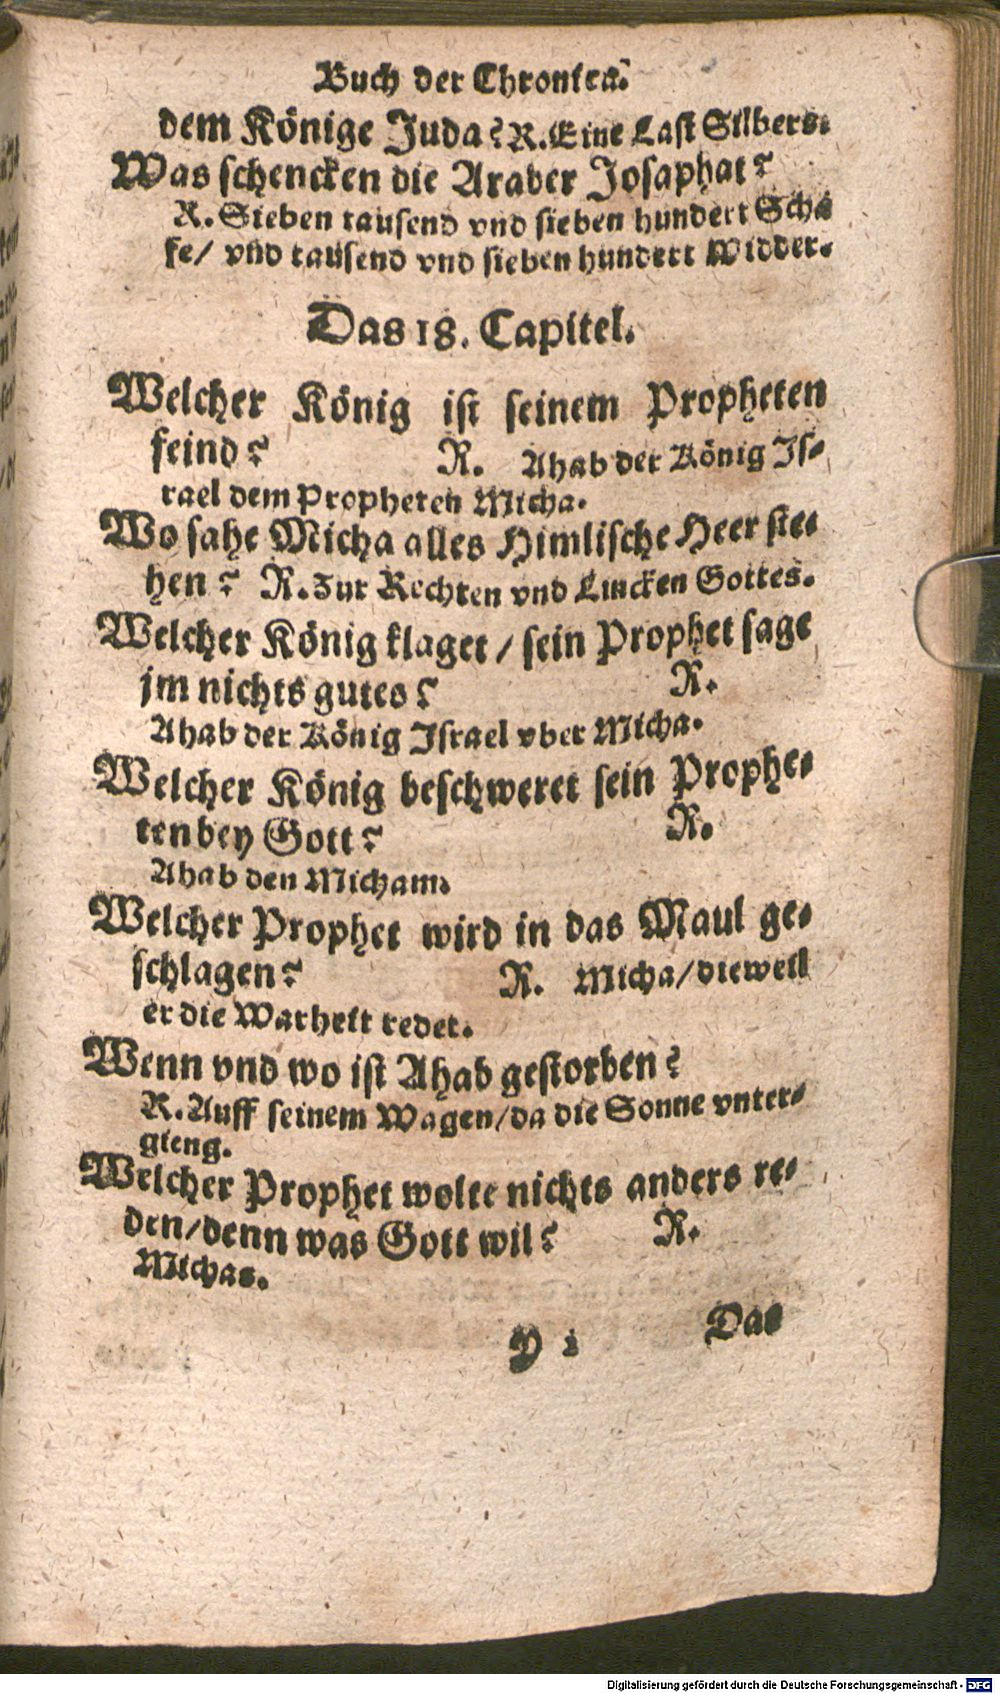 Buch der Chroniken.
dem Könige Juda? R. Eine Last Silbers.
Was schencken die Araber Josaphat?
R. Sieben tausend vnd sieben hundert Scha
fe/ vnd tausend vnd sieben hundert Widder.
Das 18. Capitel.
Welcher König ist seinem Propheten
feind? R. Ahab der König Js-
rael dem Propheten Micha.
Wo sahe Micha alles Himlische Heer ste-
hen? R. Zur Rechten vnd Lincken Gottes.
Welcher König klaget / sein Prophet sage
jm nichts gutes? R.
Ahab der König Jsrael vber Micha.
Welcher König beschweret sein Prophe-
ten bey Gott? R.
Ahab den Micham.
Welcher Prophet wird in das Maul ge-
schlagen? R. Micha/ dieweil
er die Warheit redet.
Wenn vnd wo ist Ahab gestorben?
R. Auff seinem Wagen/ da die Sonne vnter-
gieng.
Welcher Prophet wolte nichts anders re-
den/ denn was Gott wil? R.
Michas.
Y 2 Das
Digitalisierung gefördert durch die Deutsche Forschungsgemeinschaft - DFG